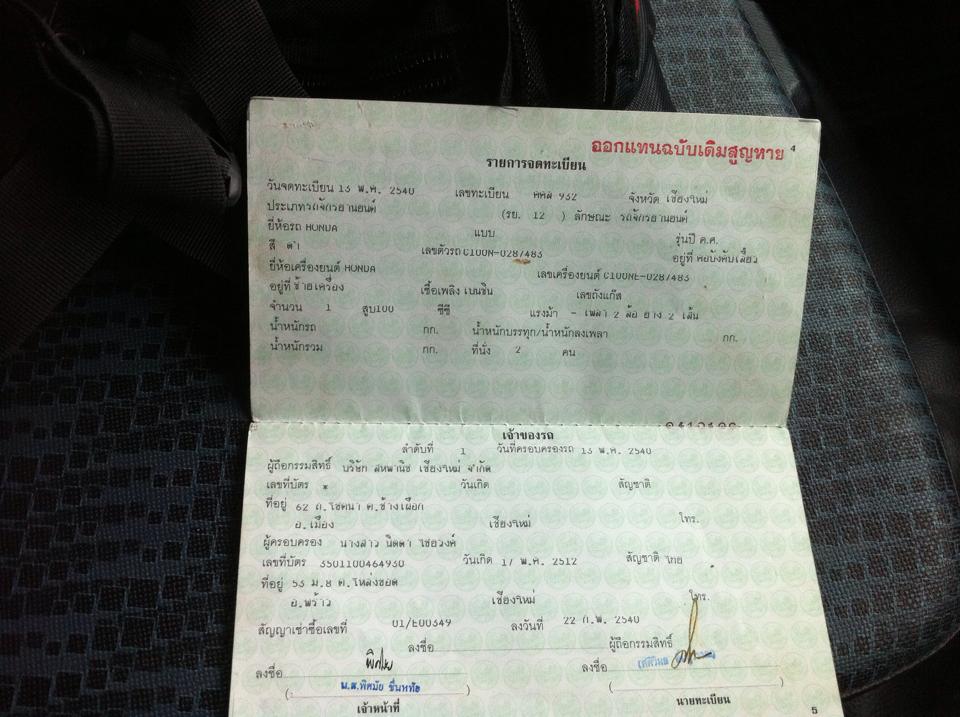 ออกแทนฉบับเดิมสูญหาย 4
รายการจดทะเบียน
วันจดทะเบียน 13 พ.ค. 2540 เลขทะเบียน 932 จังหวัด เชียงใหม่
ประเภทรถจักรยานยนต์ (รย. 12 ) ลักษณะ รถจักรยานยนต์
ยี่ห้อรถ HONDA แบบ รุ่นปี ค.ศ.
สี ดำ เลขตัวรถ C100N-0287483 อยู่ที่ คอบังคับเลี้ยว
ยี่ห้อเครื่องยนต์ HONDA เลขเครื่องยนต์ C100NE-0287483
อยู่ที่ ซ้ายเครื่อง เชื้อเพลิง เบนซิน เลขถังแก๊ส
จำนวน 1 สูบ 100 ซีซี แรงม้า - เพลา 2 ล้อ ยาง 2 เส้น
น้ำหนักรถ กก. น้ำหนักบรรทุก/น้ำหนักลงเพลา กก.
น้ำหนักรวม กก. ที่นั่ง 2 คน
เจ้าของรถ
ลำดับที่ 1 วันที่ครอบครองรถ 13 พ.ค. 2540
ผู้ถือกรรมสิทธิ์ บริษัท สหพานิช เชียงใหม่ จำกัด
เลขที่บัตร * วันเกิด สัญชาติ
ที่อยู่ 62 ถ.โชตนา ต.ช้างเผือก
อ.เมือง เชียงใหม่ โทร.
ผู้ครอบครอง นางสาว นิตตา ไชยวงค์
เลขที่บัตร 3501100464930 วันเกิด 17 พ.ค. 2512 สัญชาติ ไทย
ที่อยู่ 53 ม.8 ต.โหล่งขอด
อ.พร้าว เชียงใหม่ โทร.
สัญญาเช่าซื้อเลขที่ 01/E00349 ลงวันที่ 22 ก.พ. 2540
ลงชื่อ ผู้ถือกรรมสิทธิ์
ลงชื่อ ลงชื่อ
( น.ส.พิศมัย ชื่นหทัย ) ( )
เจ้าหน้าที่ นายทะเบียน
5